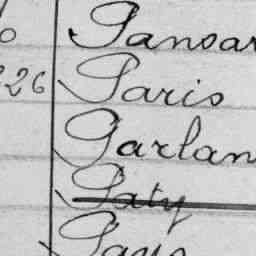 Pansar
226 Paris
Garlan
Paty
Paris